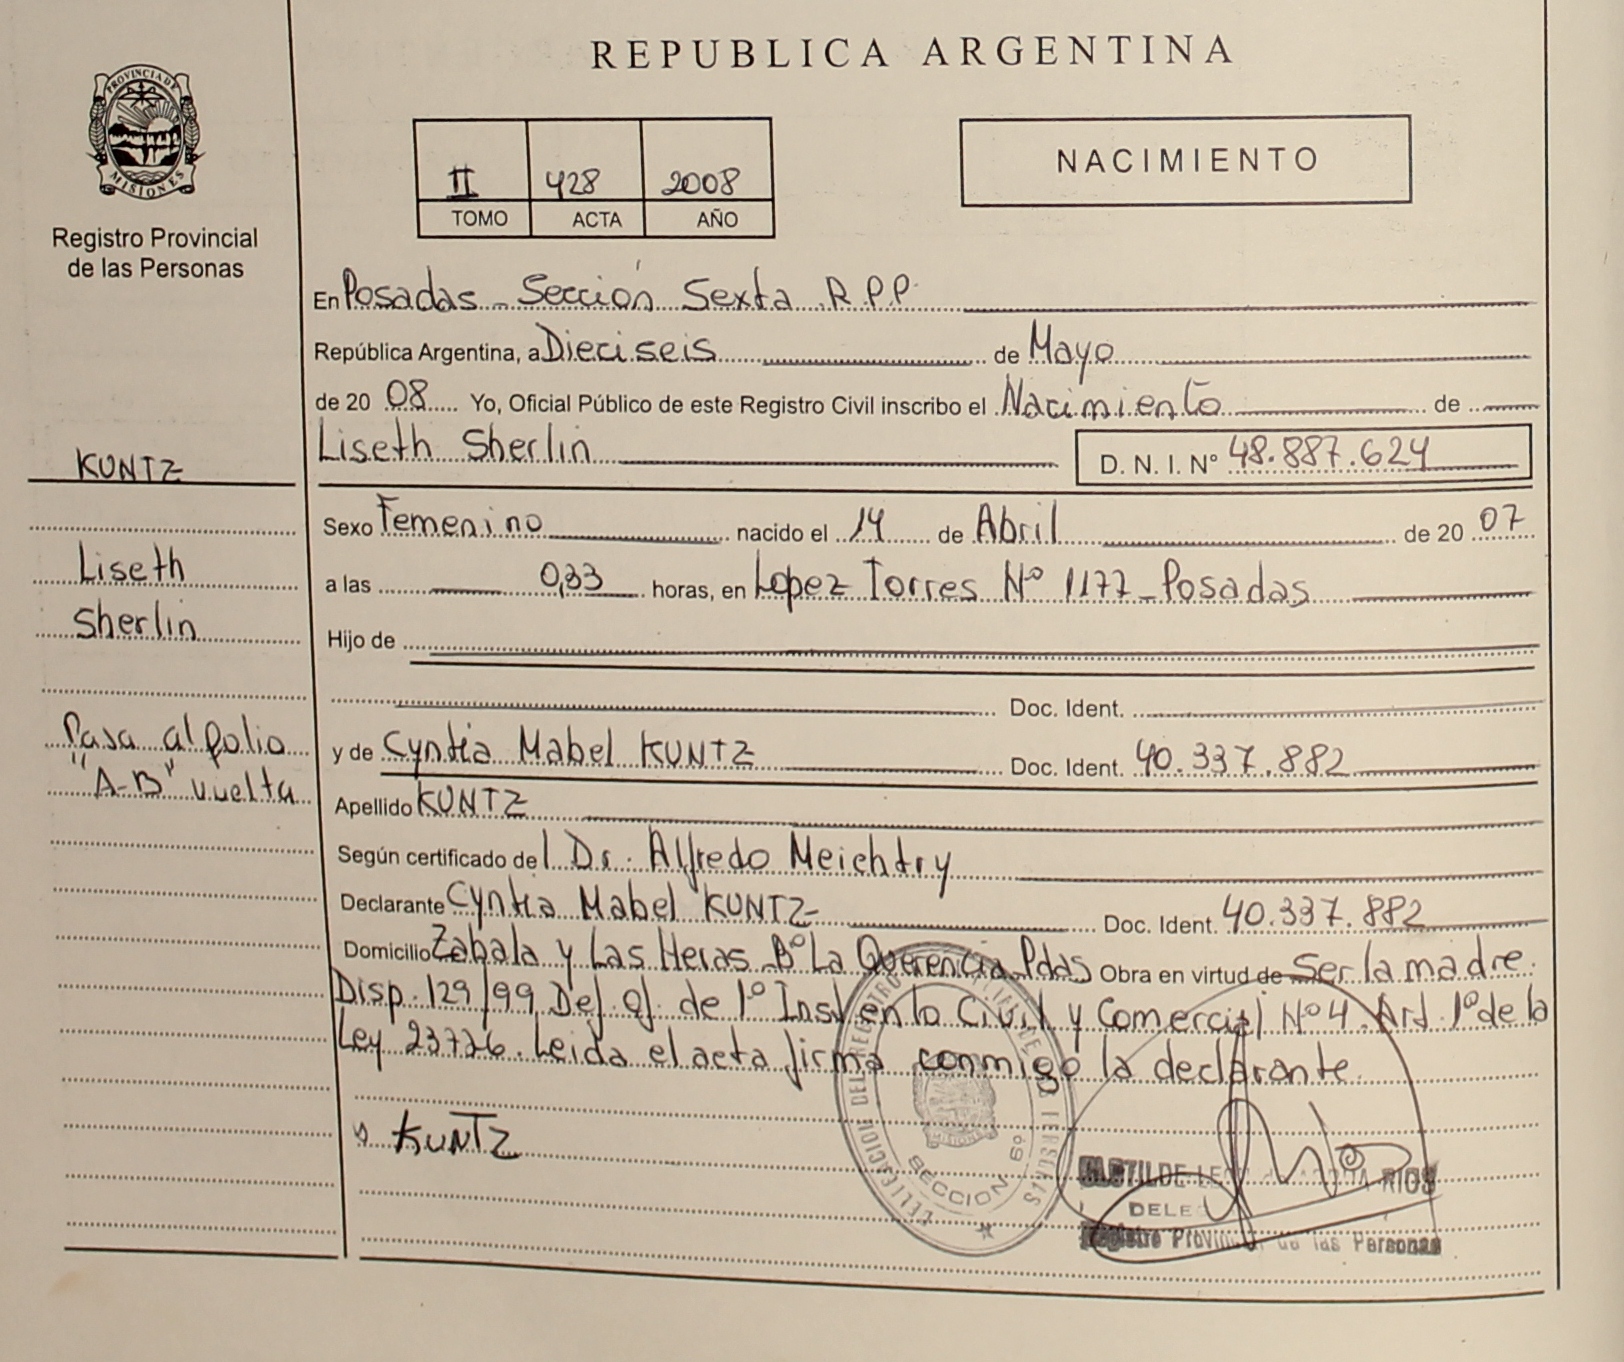 REPUBLICA ARGENTINA
PROVINCIA DE
MISIONES
Registro Provincial
de las Personas
II 428 2008
TOMO ACTA AÑO
NACIMIENTO
En Posadas - Sección Sexta R.P.P.
República Argentina, a Dieciseis de Mayo
de 2008 Yo, Oficial Público de este Registro Civil inscribo el Nacimiento de
Liseth Sherlin D. N. I. Nº 48.887.624
KUNTZ
Sexo Femenino nacido el 14 de Abril de 2007
Liseth
a las 0,33 horas, en Lopez Torres Nº 1177 - Posadas
Sherlin
Hijo de
Doc. Ident.
Pasa al folio
"A-B" vuelta
y de Cyntia Mabel KUNTZ Doc. Ident. 40.337.882
Apellido KUNTZ
Según certificado del Dr. Alfredo Meichtry
Declarante Cyntia Mabel KUNTZ Doc. Ident. 40.337.882
Domicilio Zabala y Las Heras Bº La Querencia Pdas Obra en virtud de Ser la madre.
Disp. 129/99 Def. of. de 1º Inst. en lo Civil y Comercial Nº 4. Art. 1º de la
Ley 23776. Leida el acta firma conmigo la declarante.
KUNTZ
SECCION 6º
RIOS
DELE
Registro Provincial de las Personas